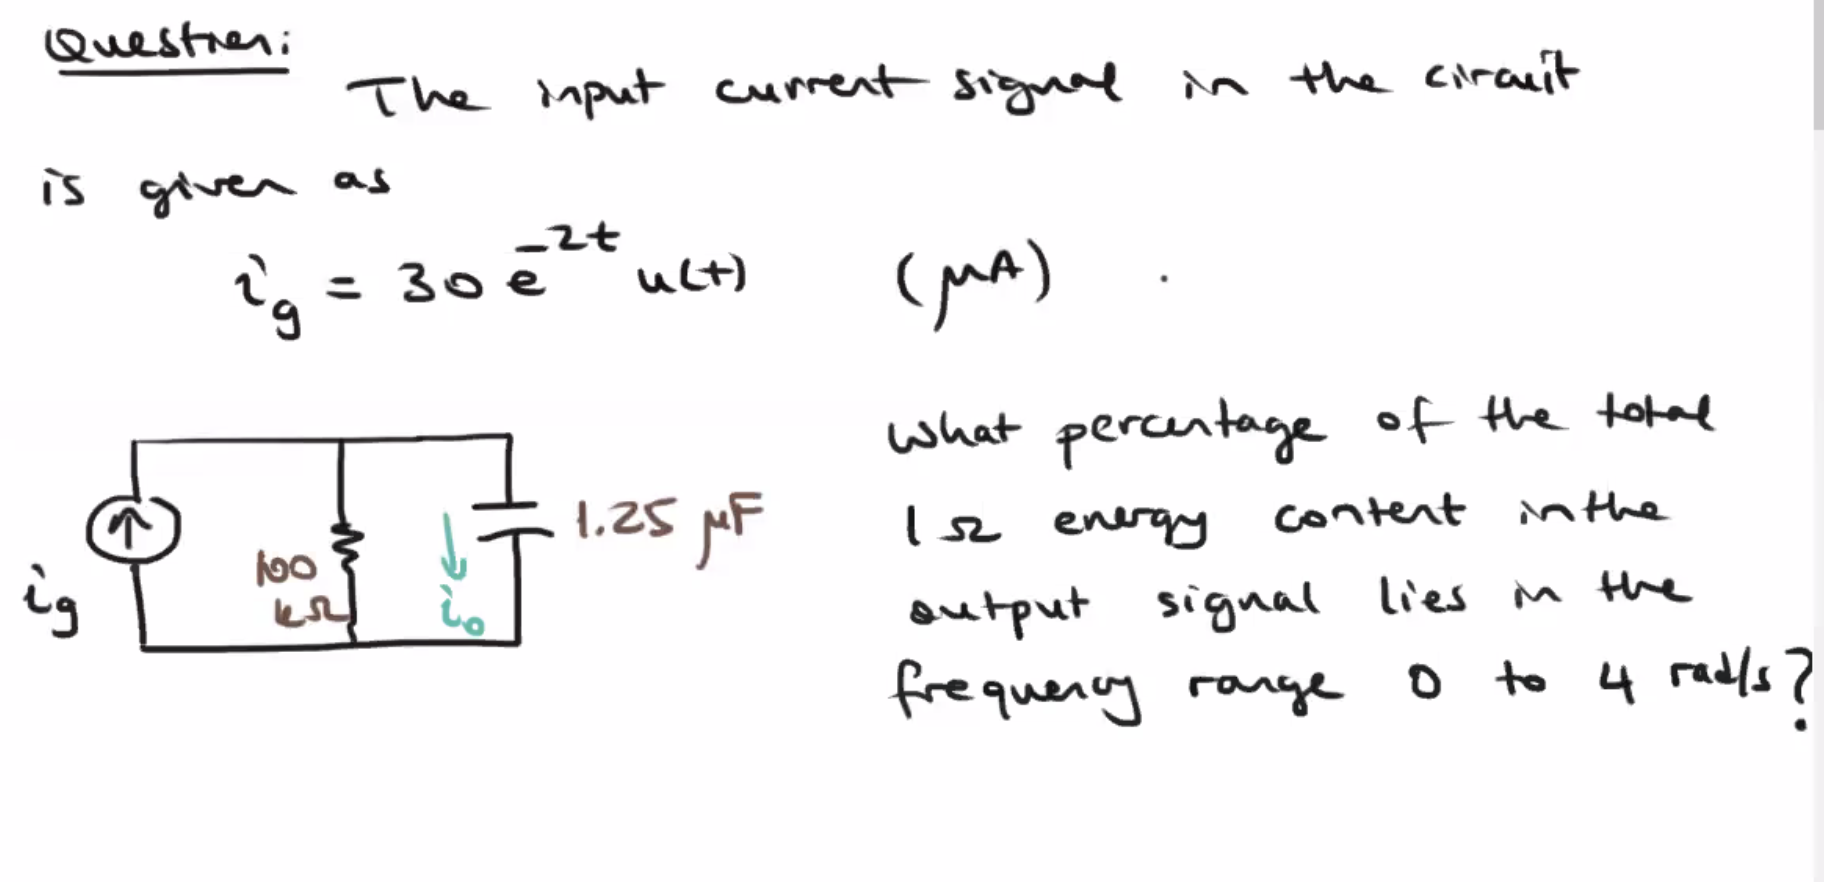 Question:
The input current signal in the circuit
is given as
i_g = 30 e^{-2t} u(t) (μA) .
What percentage of the total
1Ω energy content in the
output signal lies in the
frequency range 0 to 4 rad/s?
i_g
100
kΩ
i_o
1.25 μF